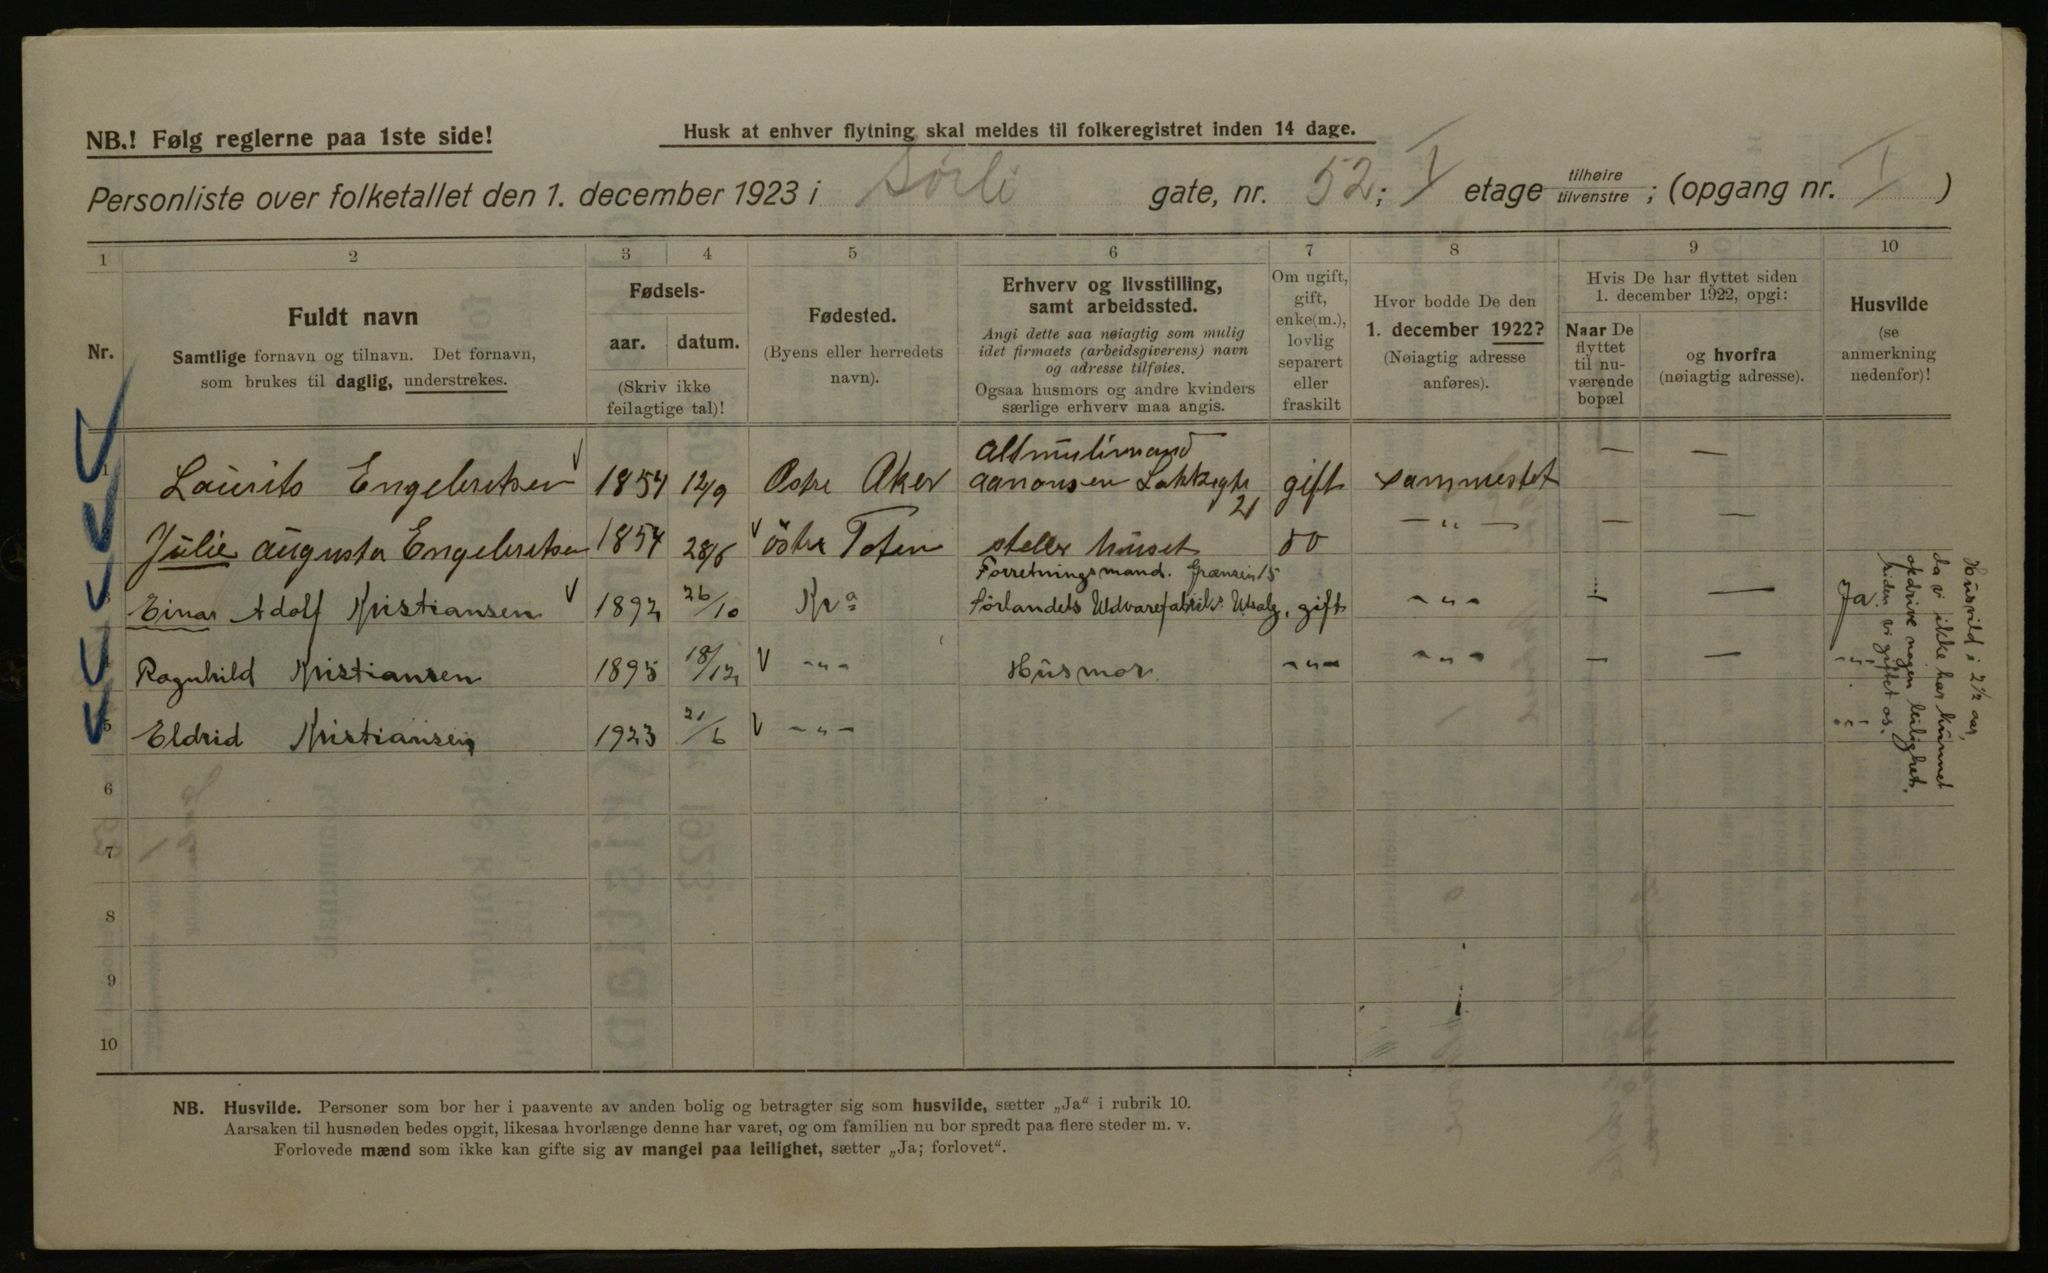 NB.! Følg reglerne paa 1ste side!
Husk at enhver flytning skal meldes til folkeregistret inden 14 dage.
Personliste over folketallet den 1. december 1923 i Sörli gate, nr. 52; I etage tilhøire tilvenstre; (opgang nr. I)
1 2 3 4 5 6 7 8 9 10
Nr.
Fuldt navn
Samtlige fornavn og tilnavn. Det fornavn,
som brukes til daglig, understrekes.
Fødsels-
aar. datum.
(Skriv ikke
feilagtige tal)!
Fødested.
(Byens eller herredets
navn).
Erhverv og livsstilling,
samt arbeidssted.
Angi dette saa nøiagtig som mulig
idet firmaets (arbeidsgiverens) navn
og adresse tilføies.
Ogsaa husmors og andre kvinders
særlige erhverv maa angis.
Om ugift,
gift,
enke(m.),
lovlig
separert
eller
fraskilt
Hvor bodde De den
1. december 1922?
(Nøiagtig adresse
anføres).
Hvis De har flyttet siden
1. december 1922, opgi:
Naar De
flyttet
til nu-
værende
bopæl
og hvorfra
(nøiagtig adresse).
Husvilde
(se
anmerkning
nedenfor)!
altmulimand
1 Laurits Engebretsen 1854 12/9 Östre Aker gift sammestet — —
21
Julie augusta Engebretsen 1854 28/6 östre Toten steller huset do — " — — —
Forretningsmand. Grænsen 15
Einar Adolf Kristiansen 1892 26/10 Kra gift - " - — — Ja.
4 Ragnhild Kristiansen 1895 18/12 - " - Husmor. - " - - " - — — - " -
5 Eldrid Kristiansen 1923 21/6 - " - - " -
Husvild i 2½ aar,
da vi ikke har kunnet
opdrive nogen leilighet,
siden vi giftet os.
6
7
8
9
10
NB. Husvilde. Personer som bor her i paavente av anden bolig og betragter sig som husvilde, sætter „Ja“ i rubrik 10.
Aarsaken til husnøden bedes opgit, likesaa hvorlænge denne har varet, og om familien nu bor spredt paa flere steder m. v.
Forlovede mænd som ikke kan gifte sig av mangel paa leilighet, sætter „Ja; forlovet“.